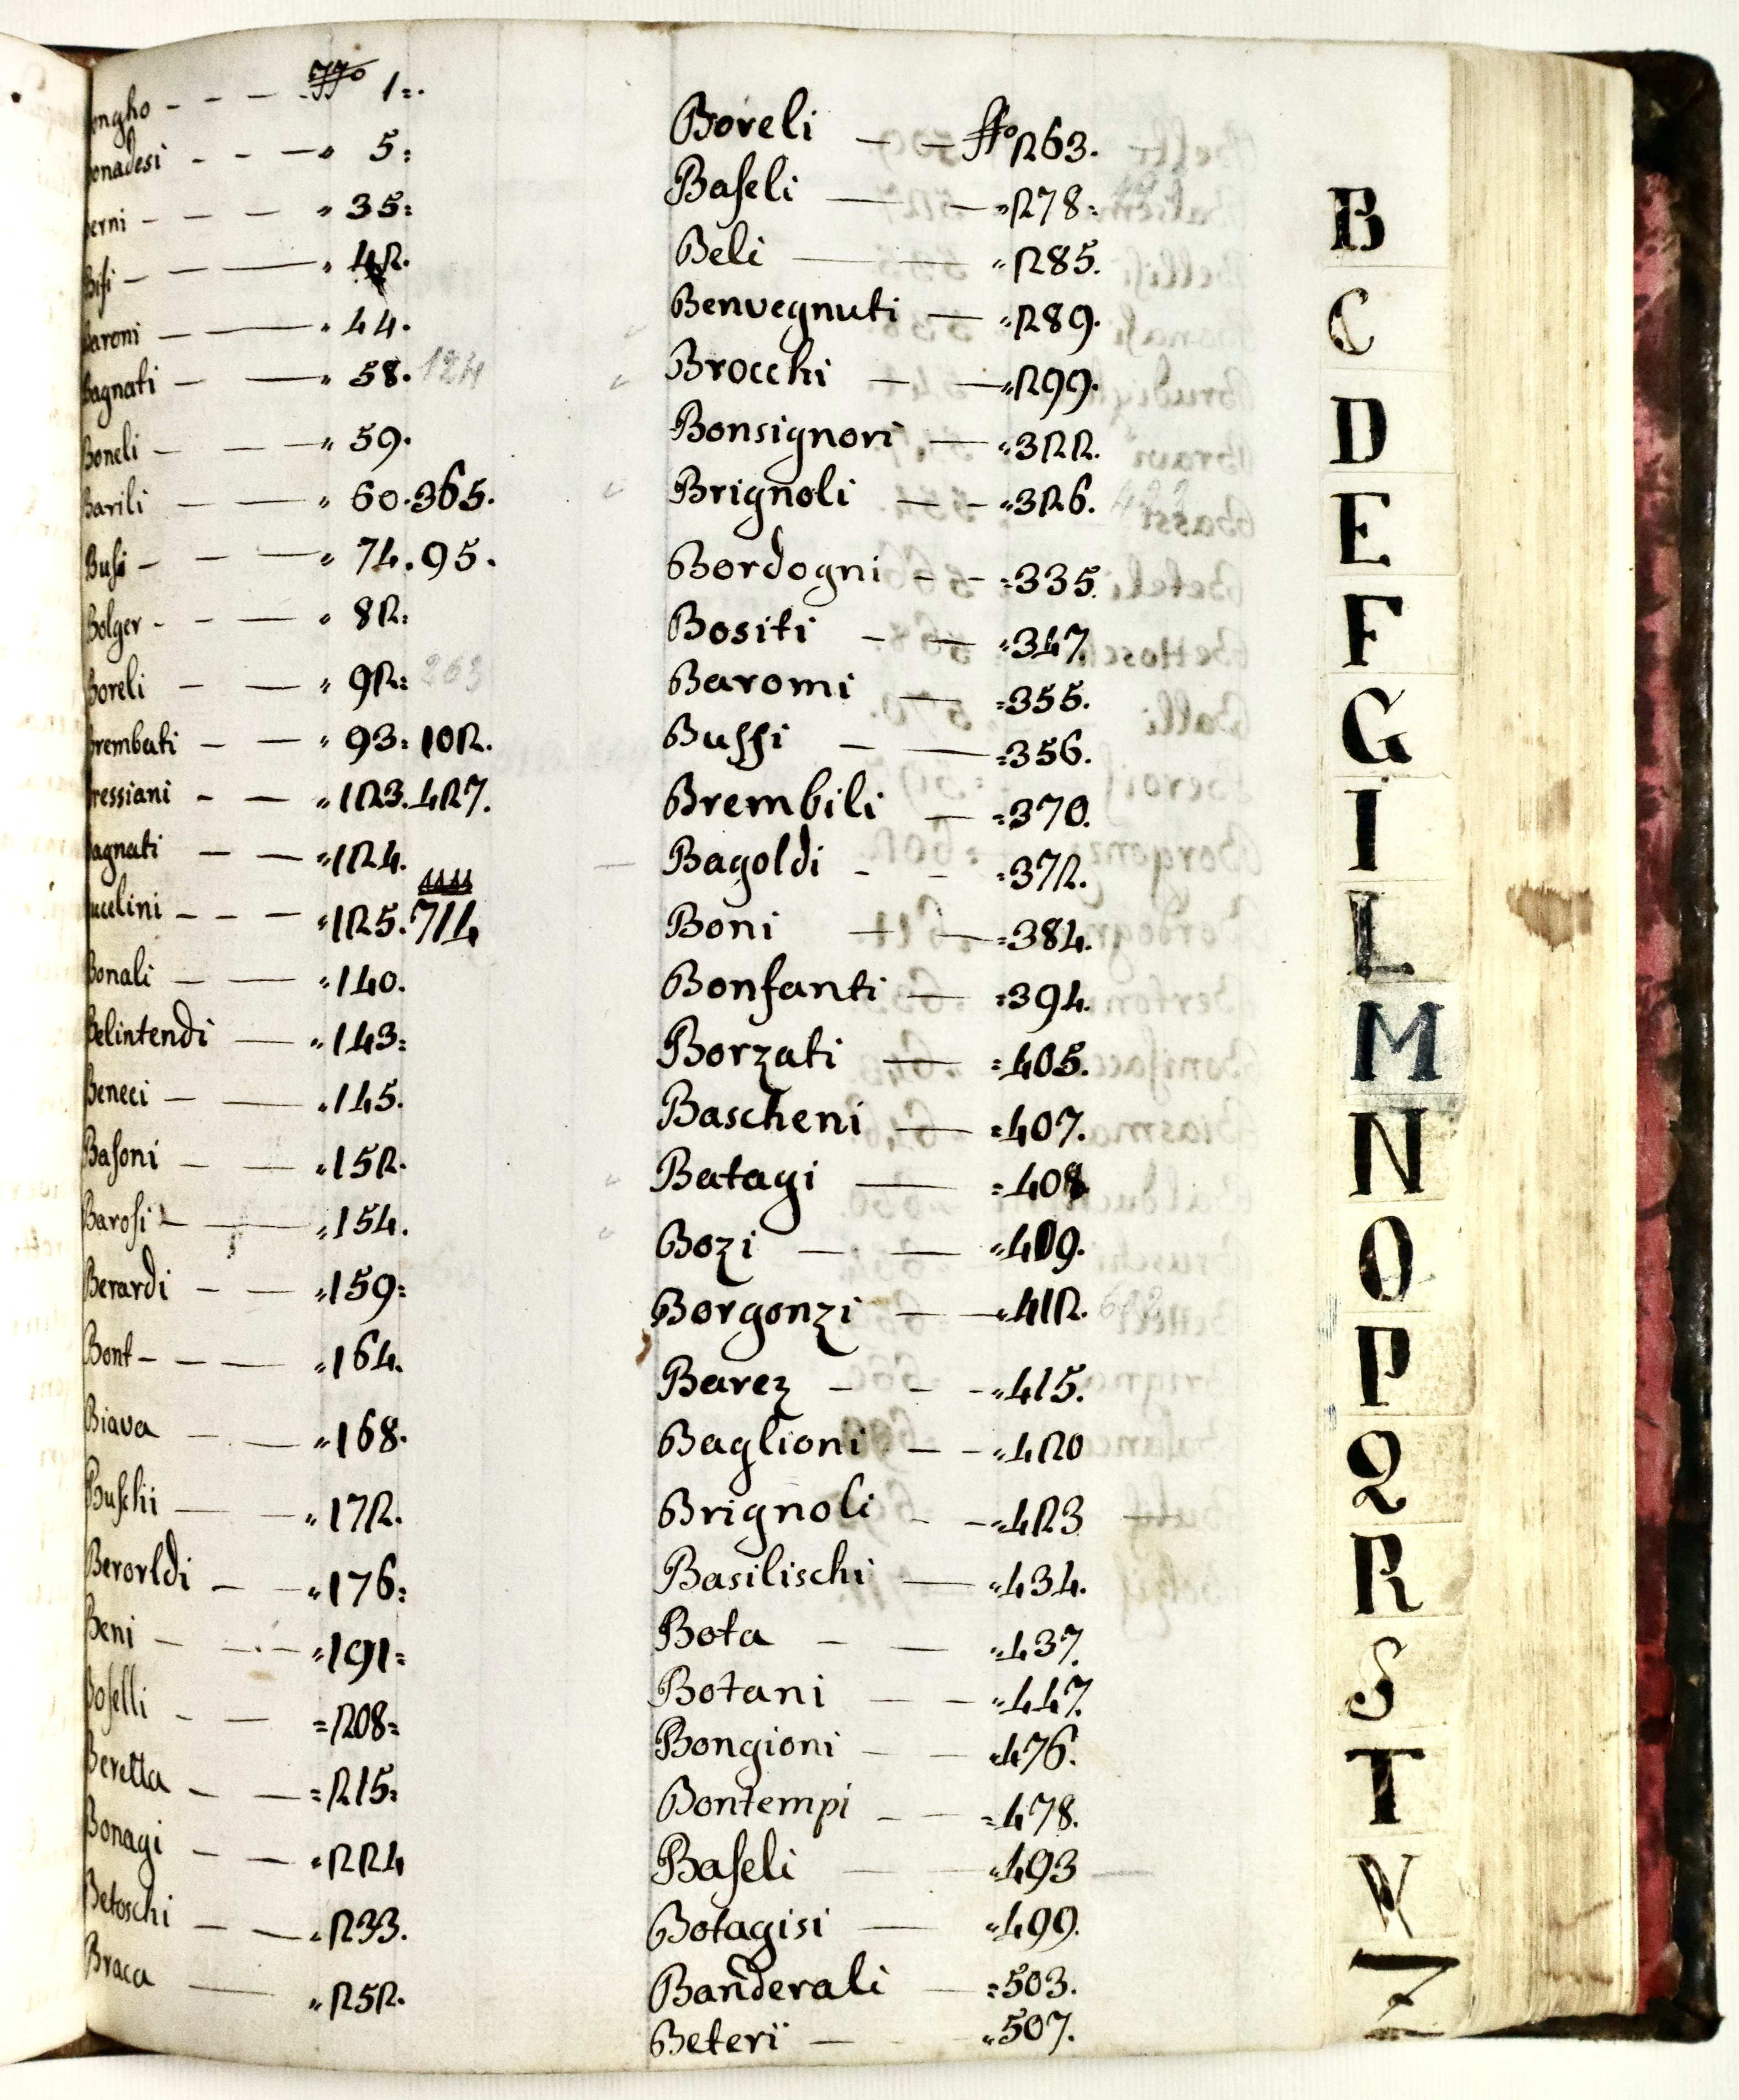 ongho - - - ffo 1:.
onadesi - - - " 5:
erni - - - " 35:
Bisi - - - " 42.
Baroni - - " 44.
Bagnati - - " 58. 124
Boneli - - - " 59.
Barili - - " 60. 365.
Busi - - - " 74. 95.
Bolger - - - " 82:
Boreli - - " 92: 263
Brembati - - " 93: 102.
ressiani - - " 123. 427.
agnati - - " 124.
ucelini - - - " 125. 714
Bonali - - " 140.
Belintendi - " 143:
Beneci - - " 145.
Basoni - - " 152.
Barosi - - " 154.
Berardi - - " 159:
Bont - - - " 164.
Biava - - " 168.
Buschi - - " 172.
Berorldi - - " 176:
Beni - - - " 191:
Boselli - - = 208=
Beretta - - = 215:
Bonagi - - " 224
Betoschi - - " 233.
Braca - " 252.
Boreli - - ffo 263.
Baseli - - " 278:
Beli - - " 285.
Benvegnuti - " 289.
Brocchi - - " 299.
Bonsignori - " 322.
Brignoli - - " 326.
Bordogni - - = 335.
Bositi - - " 347.
Baromi - = 355.
Bussi - - = 356.
Brembili - = 370.
Bagoldi - - = 372.
Boni - - = 384.
Bonfanti - = 394.
Borzati - = 405.
Bascheni - = 407.
Batagi - = 408
Bozi - - " 409.
Borgonzi - - " 412.
Barez - - - " 415.
Baglioni - - " 420
Brignoli - - " 423
Basilischi - " 434.
Bota - - " 437.
Botani - - " 447.
Bongioni - - " 476.
Bontempi - - = 478.
Baseli - - " 493 -
Botagisi - " 499.
Banderali - = 503.
Beteri - - " 507.
B
C
D
E
F
G
I
L
M
N
O
P
Q
R
S
T
V
Z